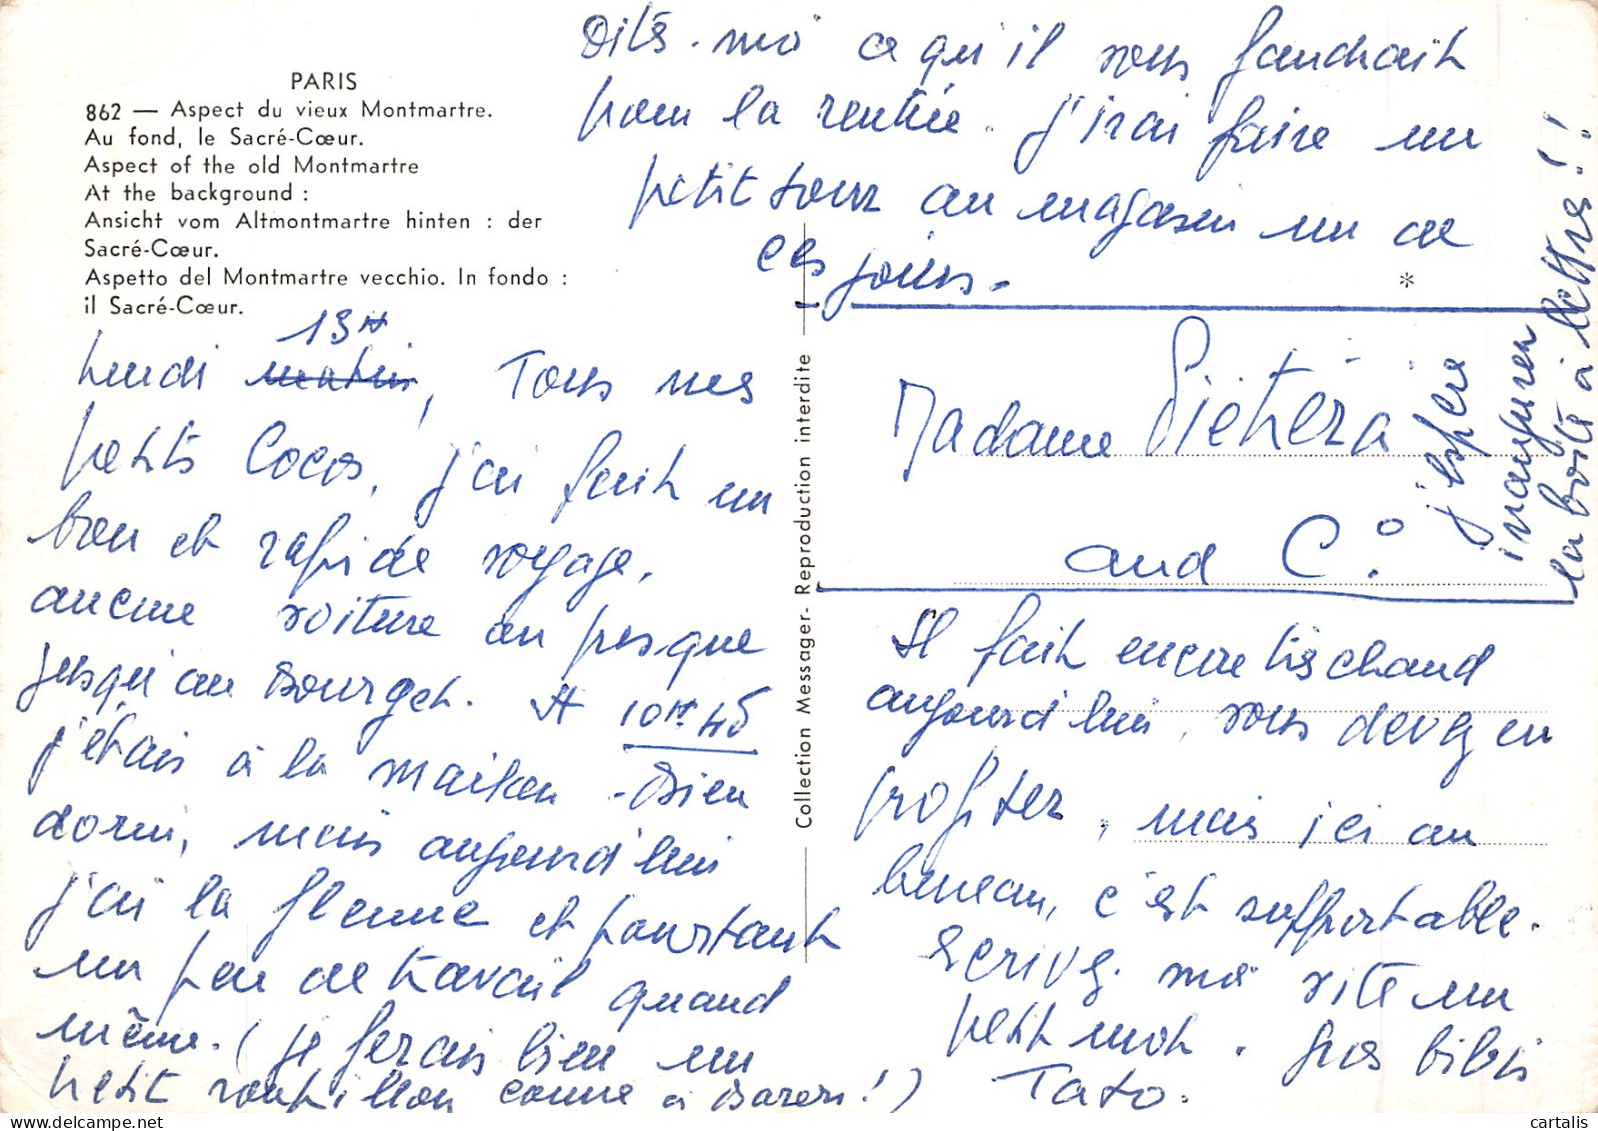 PARIS
862 — Aspect du vieux Montmartre.
Au fond, le Sacré-Cœur.
Aspect of the old Montmartre
At the background :
Ansicht vom Altmontmartre hinten : der
Sacré-Cœur.
Aspetto del Montmartre vecchio. In fondo :
il Sacré-Cœur.
13H
Lundi matin, Tous mes
petits Cocos, j'ai fait un
bon et rapide voyage,
aucune voiture ou presque
jusqu'au Bourget. A 10H 45
j'étais à la maison - Bien
dormi, mais aujourd'hui
j'ai la flemme et pourtant
un peu de travail quand
même. (je ferais bien un
petit roupillon comme à !)
Dites-moi ce qu'il vous faudrait
pour la rentrée. J'irai faire un
petit tour au magasin un de
ces jours.
*
Madame Pietréra
and C°.
Il fait encore très chaud
aujourd'hui, vous devez en
profiter, mais ici au
bureau, c'est supportable.
Ecrivez-moi vite un
petit mot. Gros bibis
Tato.
j'espère
inaugurer
la boîte à lettres !!
Collection Messager - Reproduction interdite
cartalis